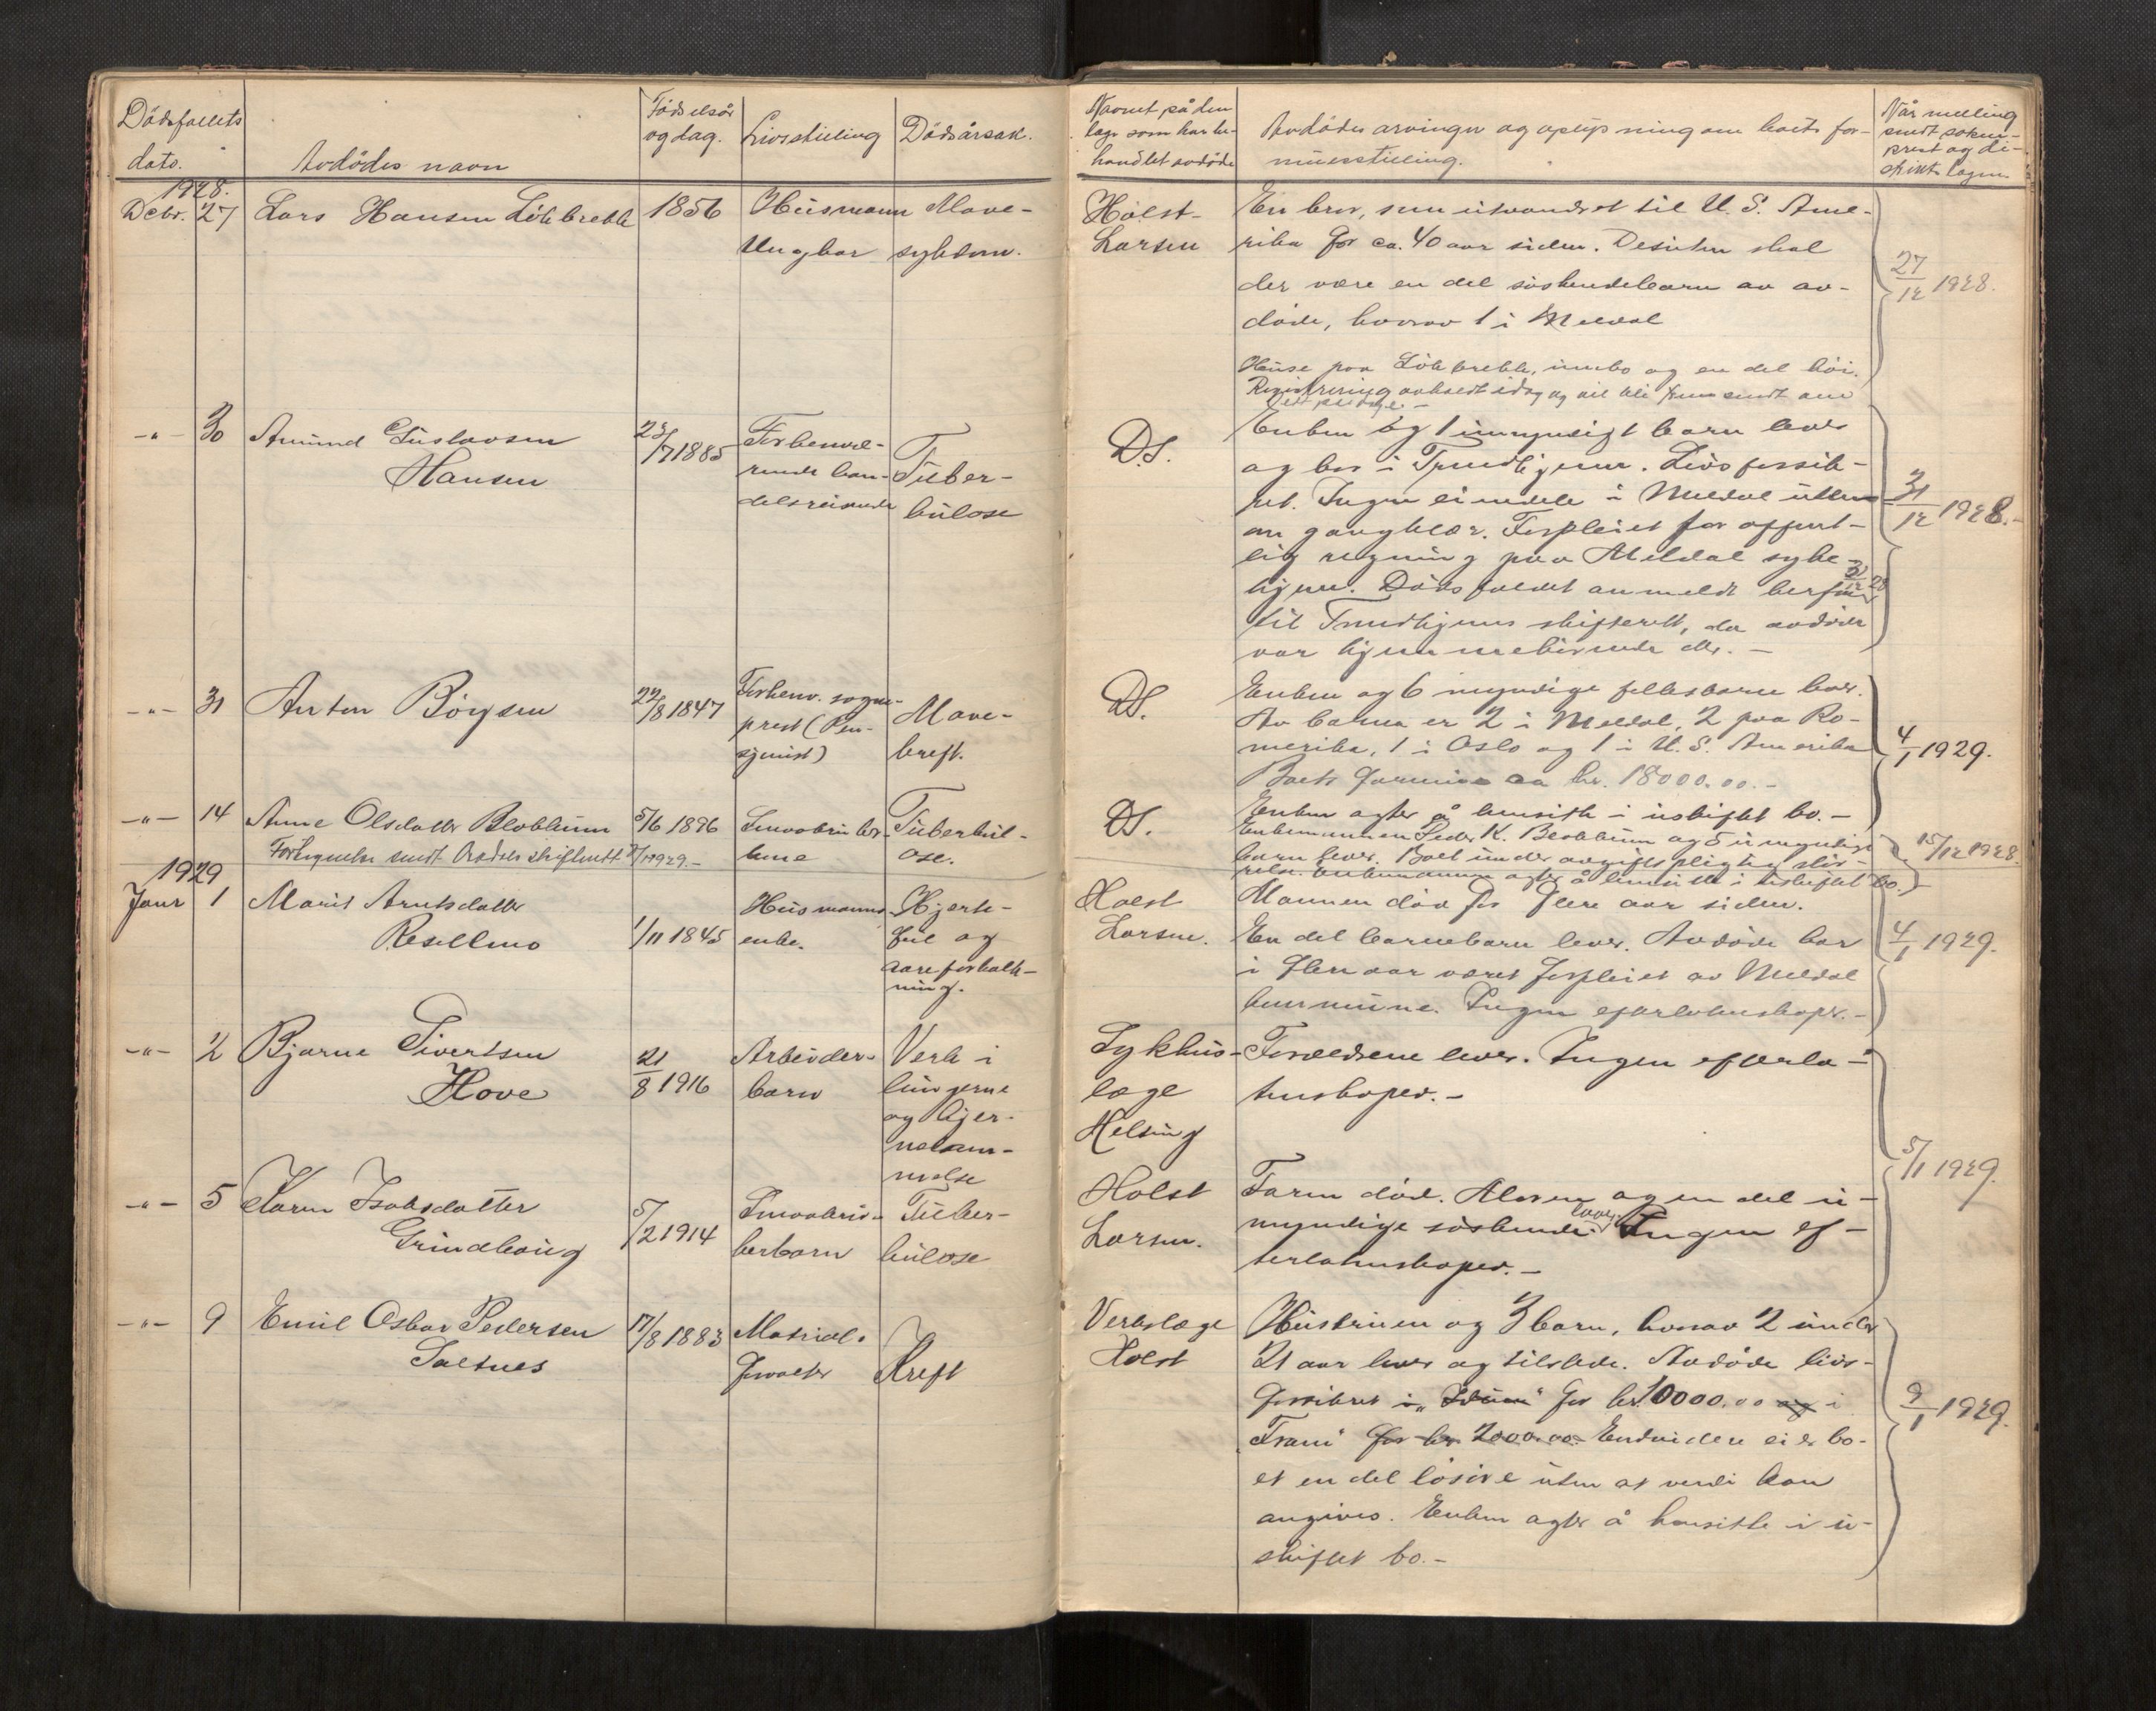 Dødsfallets
dato.
Avdødes navn
Fødselsår
og dag.
Livsstilling
Dødsårsak.
Navnet på den
læge som har be-
handlet avdøde
Avdødes arvinger og oplysning om boets for-
muesstilling.
Når melling
sendt sokne-
prest og di-
striktslægen
1928.
Debr. 27
Lars Hansen Løkbrekk
1856
Husmann
Ungkar
Mave-
sykdom.
Holst-
Larsen
En bror, som utvandret til U. S. Ame-
rika for ca. 40 aar siden. Desuten skal
der være en del søskendebarn av av-
døde, hvorav 1 i Meldal
Huse paa Løkbrekk, innbo og en del höi.
Registrering avholdt idag og vil bli fremsendt om
27/12 1928.
-"- 30
Amund Gustavsen
Hansen
23/7 1885
Forhenvæ-
rende han-
delsreisende
Tuber-
kulose
DS.
Enken og 1 umyndigt barn lever
og bor i Trondhjem. Livsforsik-
ret. Ingen eiendele i Meldal uten
en gangklær. Forpleiet for offent-
lig regning paa Meldal syke-
hjem. Dødsfaldet anmeldt herfra 31/12 28
til Trondhjems skifterett, da avdøde
var hjemmehörende der. -
31/12 1928.-
-"- 31
Anton Börgsen
22/8 1847
Forhenv. sogne-
prest (Pen-
sjonist)
Mave-
kreft.
DS.
Enken og 6 myndige fellesbarn lever.
Av barna er 2 i Meldal, 2 paa Ro-
merike, 1 i Oslo og 1 i U. S. Amerika
Boets formue ca kr. 18000.00.-
Enken agter å hensitte i uskiftet bo. -
4/1 1929.
-"- 14
Anne Olsdatter Blokkum
5/6 1896
Smaabruker-
kone
Tuberkul-
ose.
DS.
Fortegnelse sendt Orkdals skifterett 2/1 1929.-
Enkemannen Peder K. Blokkum og 5 umyndige
barn lever. Boet under avgiftspligtig stör-
relse. Enkemannen agter å hensitte i uskiftet bo.-
15/12 1928.
1929
Janr 1
Marit Arntsdatter
Resellmo
1/11 1845
Husmanns-
enke.
Hjerte-
feil og
aareforkalk-
ning.
Holst
Larsen.
Mannen död for flere aar siden.
En del barnebarn lever. Avdöde har
i flere aar været forpleiet av Meldal
kommune. Ingen efterlatenskaper.-
4/1 1929.
-"- 2
Bjarne Sivertsen
Hove
21/8 1916
Arbeider-
barn
Verk i
lungerne
og hjer-
nebeten-
nelse
Sykhus-
læge
Helsing
Forældrene lever. Ingen efterla-
tenskaper.-
5/1 1929.
-"- 5
Karen Isaksdatter
Grindhaug
5/2 1914
Smaabru-
kerbarn
Tuber-
kulose
Holst
Larsen.
Faren död. Moren og en del u-
myndige söskende lever. Ingen ef-
terlatenskaper.-
-"- 9
Emil Oskar Pedersen
Saltnes
17/8 1883
Material-
forvalter
Kreft
Verkslæge
Holst
Hustruen og 3 barn, hvorav 2 under
21 aar lever og tilstede. Avdöde livs-
forsikret i "Idun" for kr. 10000.00 og i
"Fram" for kr. 2000.00. Endvidere eier bo-
et en del lösöre uten at verdi kan
angives. Enken agter å hensitte i u-
skiftet bo.-
9/1 1929.